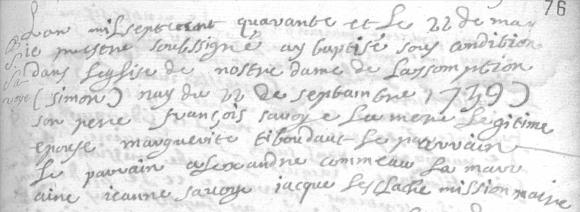 76
Lan mil septcent quarante et le 22 de mar
ie prestre soubsigné ay baptisé sous condition
dans leglise de nostre dame de lassomption
(simon) nay du 22 de septambre 1739)
son pere françois savoye la mere legitime
epouse marguerite tibaudaut le parrain
le parrain alexandre commeau la marr
aine ieanne savoye jacque lesclache missionnaire